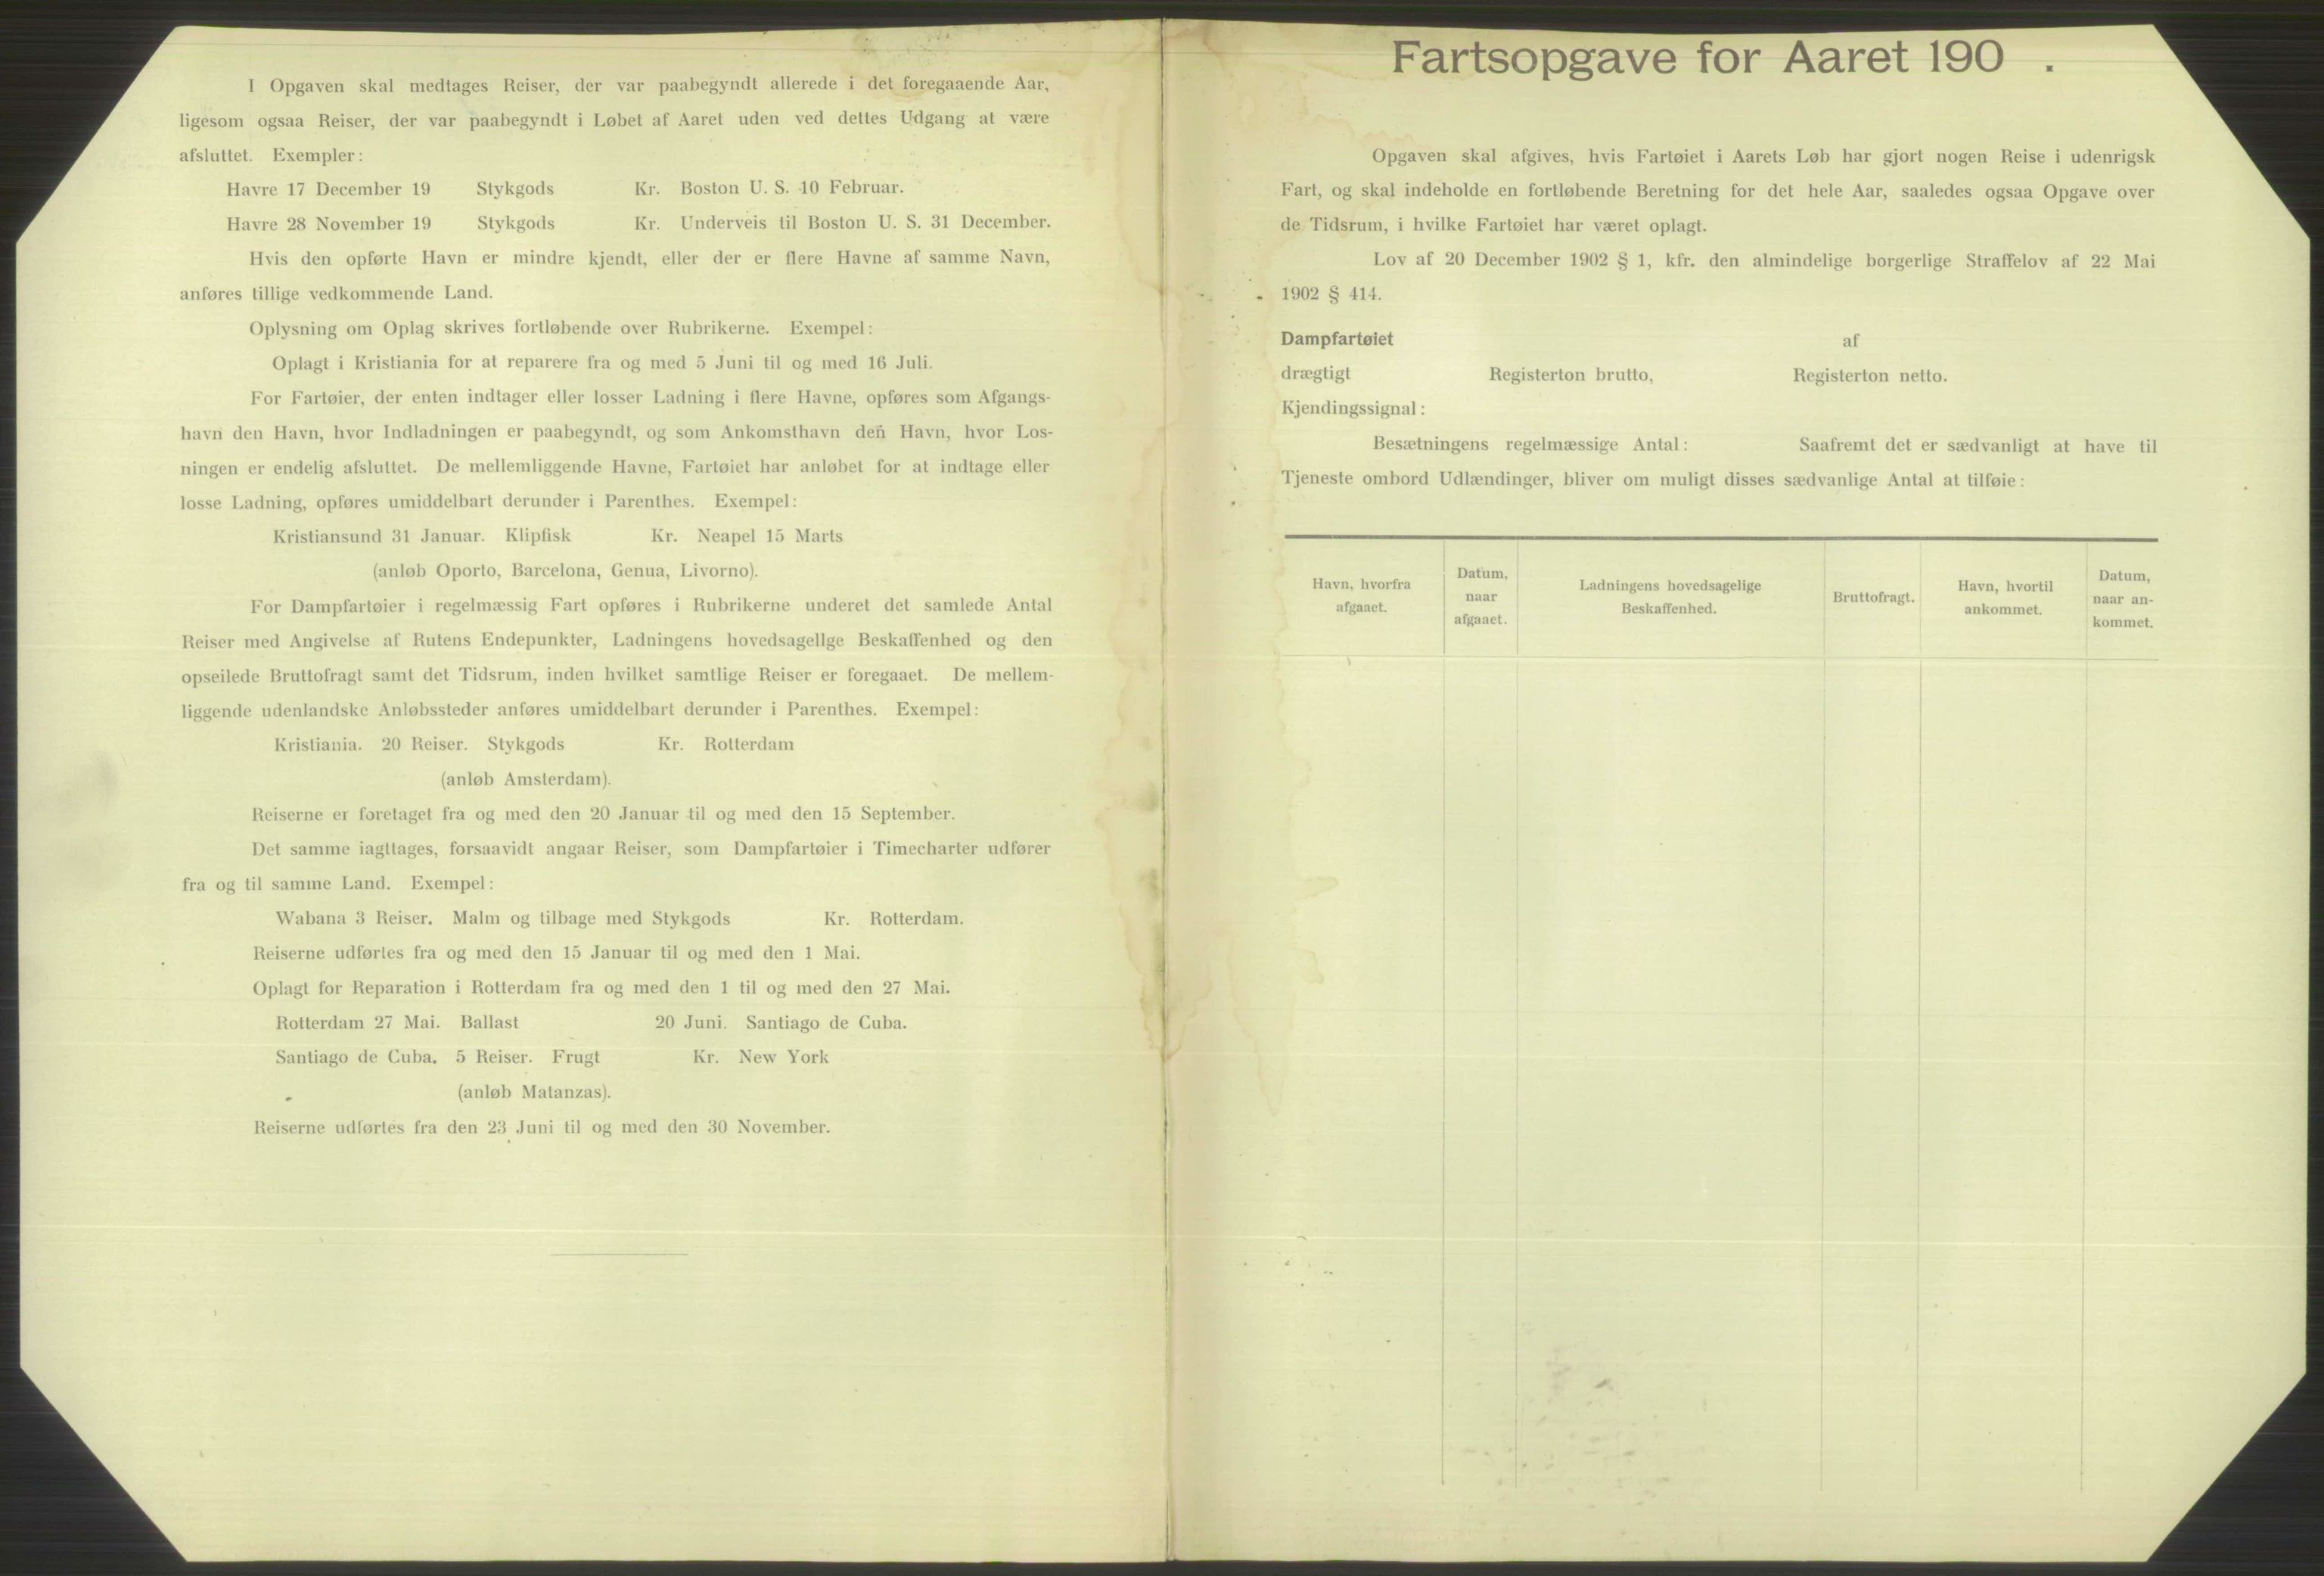 I Opgaven skal medtages Reiser, der var paabegyndt allerede i det foregaaende Aar,
ligesom ogsaa Reiser, der var paabegyndt i Løbet af Aaret uden ved dettes Udgang at være
afsluttet. Exempler:
Havre 17 December 19 Stykgods Kr. Boston U. S. 10 Februar.
Havre 28 November 19 Stykgods Kr. Underveis til Boston U. S. 31 December.
Hvis den opførte Havn er mindre kjendt, eller der er flere Havne af samme Navn,
anføres tillige vedkommende Land.
Oplysning om Oplag skrives fortløbende over Rubrikerne. Exempel:
Oplagt i Kristiania for at reparere fra og med 5 Juni til og med 16 Juli.
For Fartøier, der enten indtager eller losser Ladning i flere Havne, opføres som Afgangs-
havn den Havn, hvor Indladningen er paabegyndt, og som Ankomsthavn den Havn, hvor Los-
ningen er endelig afsluttet. De mellemliggende Havne, Fartøiet har anløbet for at indtage eller
losse Ladning, opføres umiddelbart derunder i Parenthes. Exempel:
Kristiansund 31 Januar. Klipfisk Kr. Neapel 15 Marts
(anløb Oporto, Barcelona, Genua, Livorno).
For Dampfartøier i regelmæssig Fart opføres i Rubrikerne underet det samlede Antal
Reiser med Angivelse af Rutens Endepunkter, Ladningens hovedsagellge Beskaffenhed og den
opseilede Bruttofragt samt det Tidsrum, inden hvilket samtlige Reiser er foregaaet. De mellem-
liggende udenlandske Anløbssteder anføres umiddelbart derunder i Parenthes. Exempel:
Kristiania. 20 Reiser. Stykgods Kr. Rotterdam
(anløb Amsterdam).
Reiserne er foretaget fra og med den 20 Januar til og med den 15 September.
Det samme iagttages, forsaavidt angaar Reiser, som Dampfartøier i Timecharter udfører
fra og til samme Land. Exempel:
Wabana 3 Reiser. Malm og tilbage med Stykgods Kr. Rotterdam.
Reiserne udførtes fra og med den 15 Januar til og med den 1 Mai.
Oplagt for Reparation i Rotterdam fra og med den 1 til og med den 27 Mai.
Rotterdam 27 Mai. Ballast 20 Juni. Santiago de Cuba.
Santiago de Cuba. 5 Reiser. Frugt Kr. New York
(anløb Matanzas).
Reiserne udførtes fra den 23 Juni til og med den 30 November.
Fartsopgave for Aaret 190 .
Opgaven skal afgives, hvis Fartøiet i Aarets Løb har gjort nogen Reise i udenrigsk
Fart, og skal indeholde en fortløbende Beretning for det hele Aar, saaledes ogsaa Opgave over
de Tidsrum, i hvilke Fartøiet har været oplagt.
Lov af 20 December 1902 § 1, kfr. den almindelige borgerlige Straffelov af 22 Mai
1902 § 414.
Dampfartøiet af
drægtigt Registerton brutto, Registerton netto.
Kjendingssignal:
Besætningens regelmæssige Antal: Saafremt det er sædvanligt at have til
Tjeneste ombord Udlændinger, bliver om muligt disses sædvanlige Antal at tilføie:
Havn, hvorfra
afgaaet.
Datum,
naar
afgaaet.
Ladningens hovedsagelige
Beskaffenhed.
Bruttofragt.
Havn, hvortil
ankommet.
Datum,
naar an-
kommet.